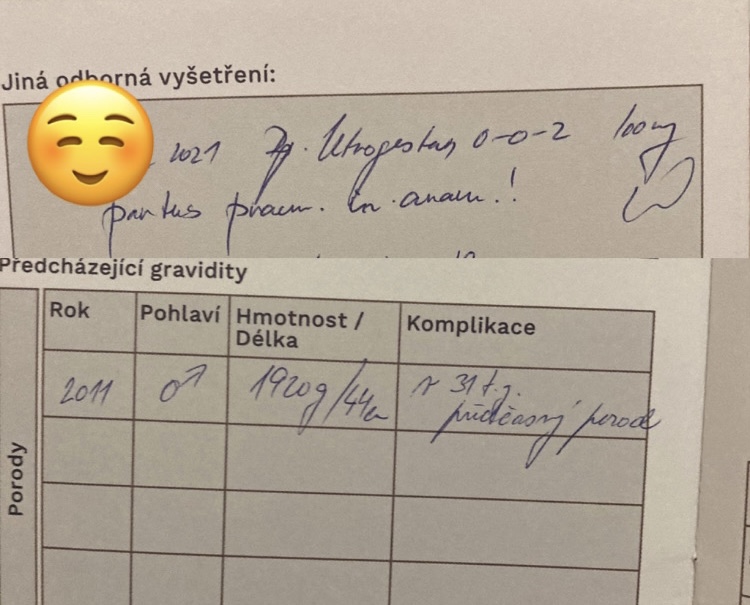 Jiná odborná vyšetření:
2021 Rp. Utrogestan 0-0-2 100mg
partus praem. in anam.!
Předcházející gravidity
Rok Pohlaví Hmotnost / Délka Komplikace
2011 ♂ 1920g/44cm 31 t.g.
předčasný porod
Porody